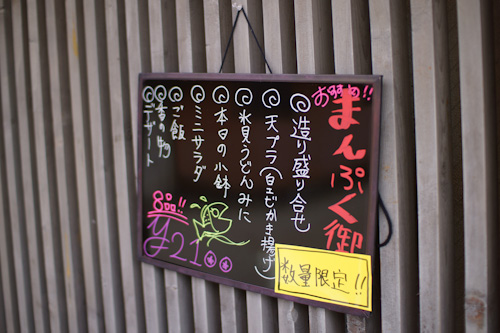 お勧め!!
まんぷく御
◎造り盛り合せ
◎天プラ(白エビかき揚げ)
◎氷見うどんみに
◎本日の小鉢
◎ミニサラダ
◎ご飯
◎香の物
◎デザート
8品!!
¥2100
数量限定!!